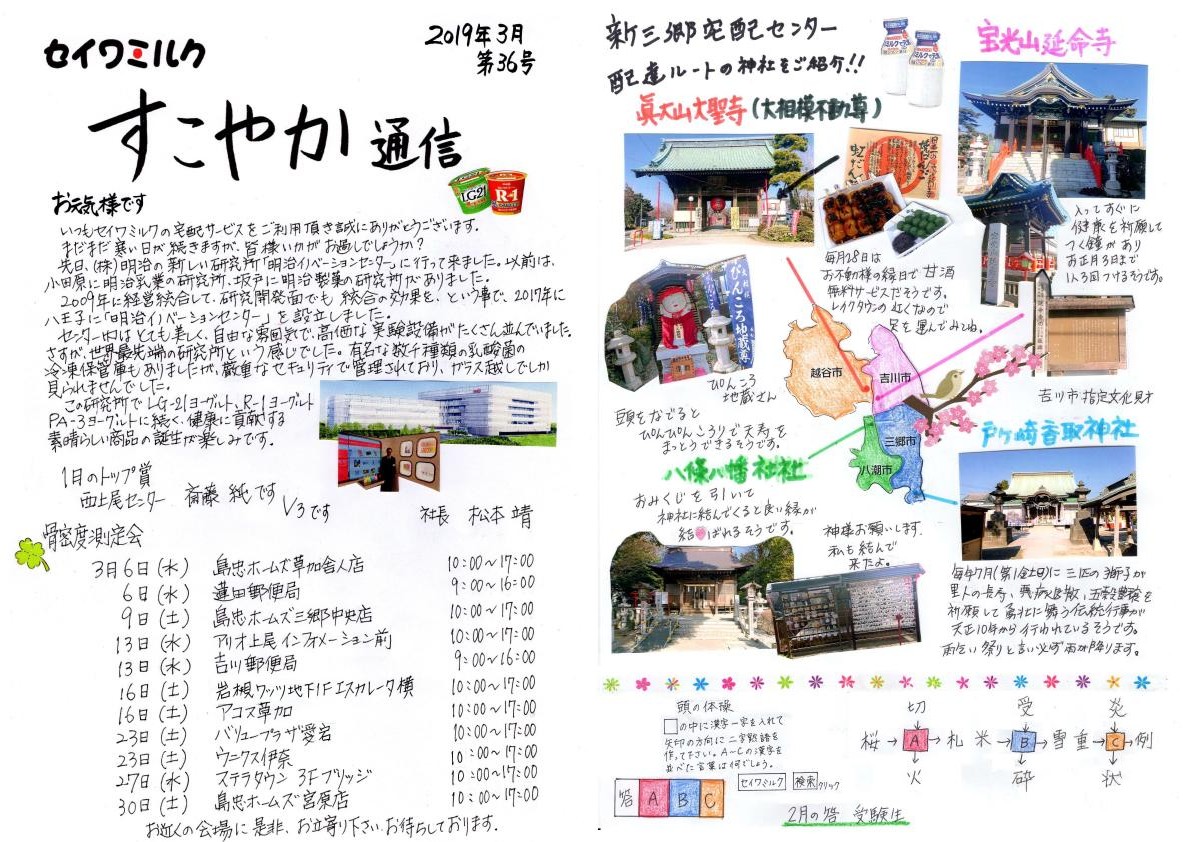 セイワミルク
2019年3月
第36号
すこやか通信
LG21
R-1
お元気様です
いつもセイワミルクの宅配サービスをご利用頂き誠にありがとうございます。
まだまだ寒い日が続きますが、皆様いかがお過しでしょうか？
先日、(株)明治の新しい研究所「明治イノベーションセンター」に行って来ました。以前は、
小田原に明治乳業の研究所、坂戸に明治製菓の研究所がありました。
2009年に経営統合して、研究開発面でも統合の効果を、という事で、2017年に
八王子に「明治イノベーションセンター」を設立しました。
センター内はとても美しく、自由な雰囲気で、高価な実験設備がたくさん並んでいました。
さすが、世界最先端の研究所という感じでした。有名な数千種類の乳酸菌の
冷凍保管庫もありましたが、厳重なセキュリティで管理されており、ガラス越しでしか
見られませんでした。
この研究所でLG-21ヨーグルト、R-1ヨーグルト
PA-3ヨーグルトに続く、健康に貢献する
素晴らしい商品の誕生が楽しみです。
1日のトップ賞
西上尾センター 斎藤 純です
V3です
社長 松本 靖
骨密度測定会
3月6日(水) 島忠ホームズ草加舎人店 10:00～17:00
6日(水) 蓮田郵便局 9:00～16:00
9日(土) 島忠ホームズ三郷中央店 10:00～17:00
13日(水) アリオ上尾インフォメーション前 10:00～17:00
13日(水) 吉川郵便局 9:00～16:00
16日(土) 岩槻ワッツ地下1Fエスカレータ横 10:00～17:00
16日(土) アコス草加 10:00～17:00
23日(土) バリュープラザ愛宕 10:00～17:00
23日(土) ウニクス伊奈 10:00～17:00
27日(水) ステラタウン 3Fブリッジ 10:00～17:00
30日(土) 島忠ホームズ宮原店 10:00～17:00
お近くの会場に是非、お立寄り下さい。お待ちしております。
新三郷宅配センター
配達ルートの神社をご紹介!!
宝光山延命寺
眞大山大聖寺(大相模不動尊)
毎月28日は
お不動様の縁日で甘酒
無料サービスだそうです。
レイクタウンの近くなので
足を運んでみてね。
入ってすぐに
健康を祈願して
つく鐘があり
お正月3日まで
1人3回つけるそうです。
ぴんころ地蔵尊
ぴんころ
地蔵さん
頭をなでると
ぴんぴんころりで天寿を
まっとうできるそうです。
越谷市
吉川市
三郷市
八潮市
吉川市指定文化財
八條八幡神社
おみくじを引いて
神社に結んでくると良い縁が
結ばれるそうです。
神様お願いします。
私も結んで
来たよ。
戸ヶ崎香取神社
毎年7月(第1金土日)に三匹の獅子が
里人の長寿、悪疫退散、五穀豊穣を
祈願して勇壮に舞う伝統行事が
天正10年から行われているそうです。
雨乞い祭りと言い必ず雨が降ります。
頭の体操
□の中に漢字一字を入れて
矢印の方向に二字熟語を
作って下さい。A～Cの漢字を
並べた言葉は何でしょう。
答 A B C
セイワミルク 検索 クリック
切
桜→A→札
火
受
米→B→雪
砕
炎
重→C→例
状
2月の答 受験生